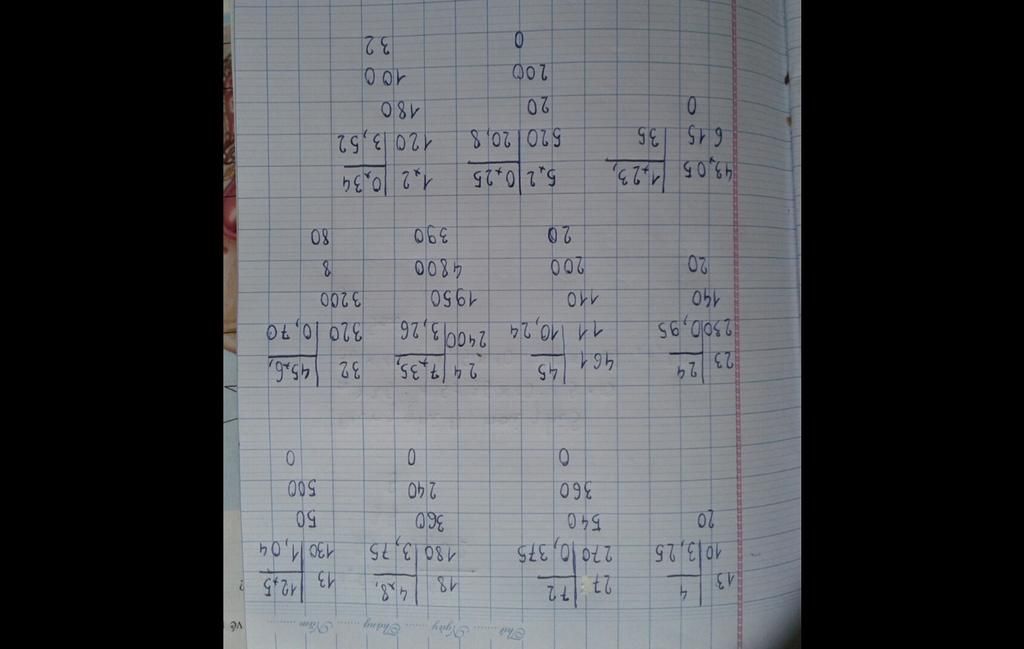 Thứ ........ Ngày ........ Tháng ........ Năm ........
13 4 27 72 18 4,8, 13 12,5
10 3,25 270 0,375 180 3,75 130 1,04
20 540 360 50
360 240 500
0 0 0
23 24 461 45 24 7,35, 32 45,6,
230 0,95 11 10,24 2400 3,26 320 0,70
140 110 1950 3200
20 200 4800 8
20 390 80
43,05 1,23, 5,2 0,25 1,2 0,34
615 35 520 20,8 120 3,52
0 20 180
200 100
0 32
về